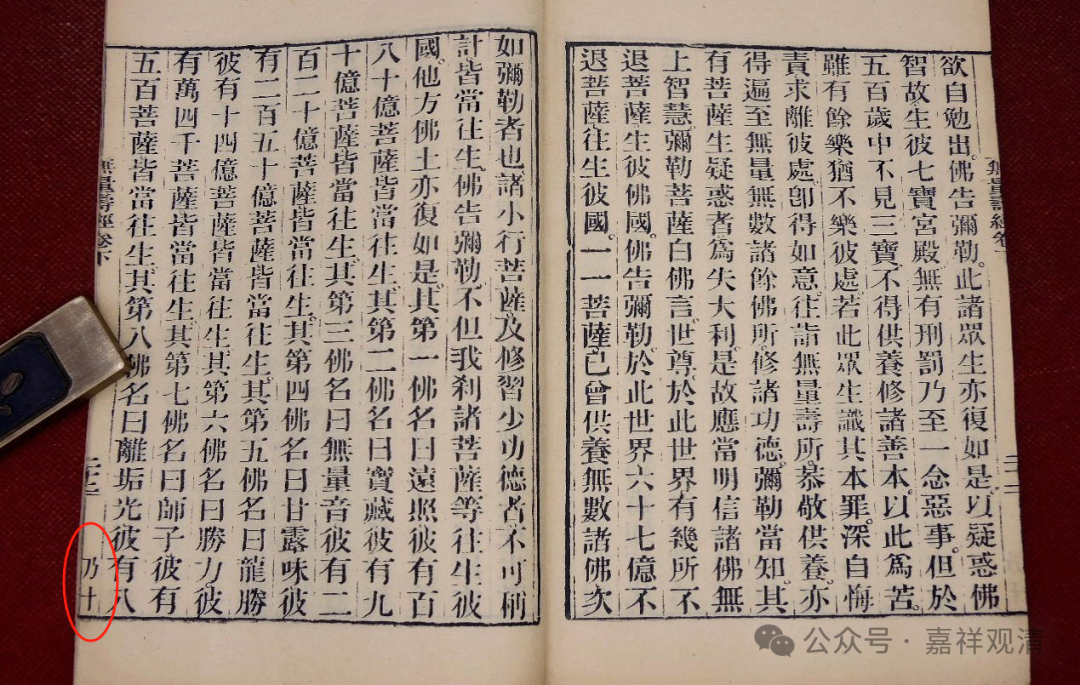 欲自勉出。佛告彌勒。此諸眾生亦復如是。以疑惑佛
智故。生彼七寶宮殿。無有刑罰乃至一念惡事。但於
五百歲中不見三寶。不得供養修諸善本。以此爲苦。
雖有餘樂猶不樂彼處。若此眾生識其本罪。深自悔
責求離彼處。卽得如意。往詣無量壽所恭敬供養。亦
得遍至無量無數諸餘佛所修諸功德。彌勒當知。其
有菩薩生疑惑者爲失大利。是故應當明信諸佛無
上智慧。彌勒菩薩白佛言。世尊於此世界有幾所不
退菩薩生彼佛國。佛告彌勒於此世界六十七億不
退菩薩往生彼國。一一菩薩已曾供養無數諸佛次
如彌勒者也諸小行菩薩及修習少功德者不可稱
計皆當往生。佛告彌勒。不但我刹諸菩薩等往生彼
國。他方佛土亦復如是。其第一佛名曰遠照彼有百
八十億菩薩皆當往生。其第二佛名曰寶藏彼有九
十億菩薩皆當往生。其第三佛名曰無量音彼有二
百二十億菩薩皆當往生。其第四佛名曰甘露味彼
有二百五十億菩薩皆當往生。其第五佛名曰龍勝
彼有十四億菩薩皆當往生。其第六佛名曰勝力。彼
有萬四千菩薩皆當往生。其第七佛名曰師子彼有
五百菩薩皆當往生。其第八佛名曰離垢光彼有八
無量壽經卷下
乃十
公众号·嘉祥观清